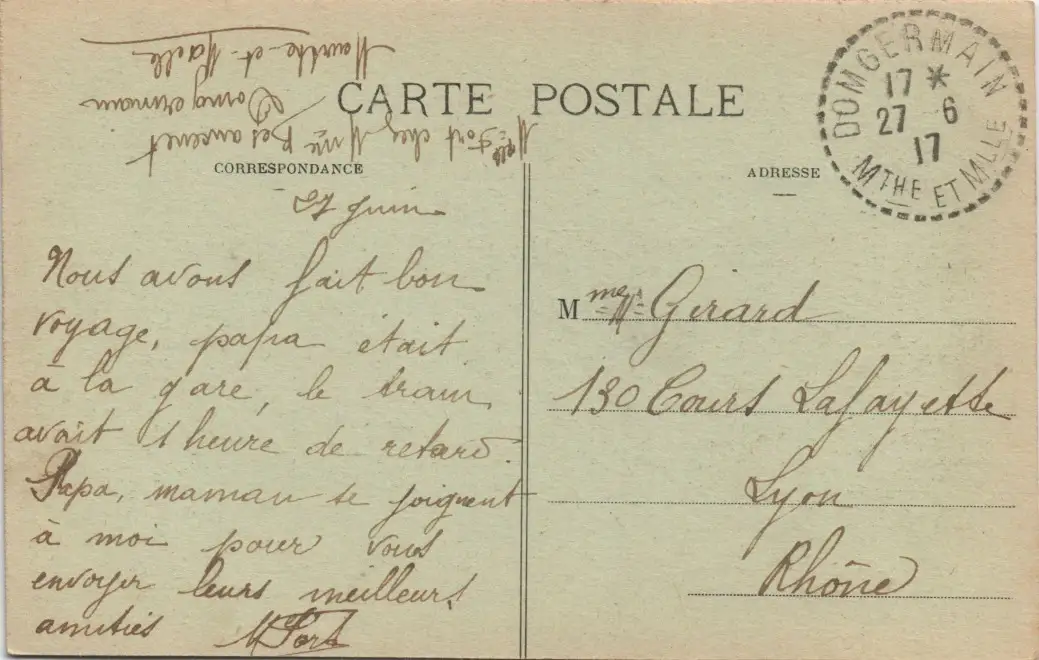 CARTE POSTALE
CORRESPONDANCE
ADRESSE
DOMGERMAIN
17 *
27 - 6
17
MTHE ET MLLE
Mlle Fort chez Mme Besancenet
Domgermain
Meurthe-et-Moselle
27 Juin
Nous avons fait bon
voyage, papa était
à la gare, le train
avait 1 heure de retard.
Papa, maman se joignent
à moi pour vous
envoyer leurs meilleurs
amitiés M Fort
Mme Girard
130 Cours Lafayette
Lyon
Rhône